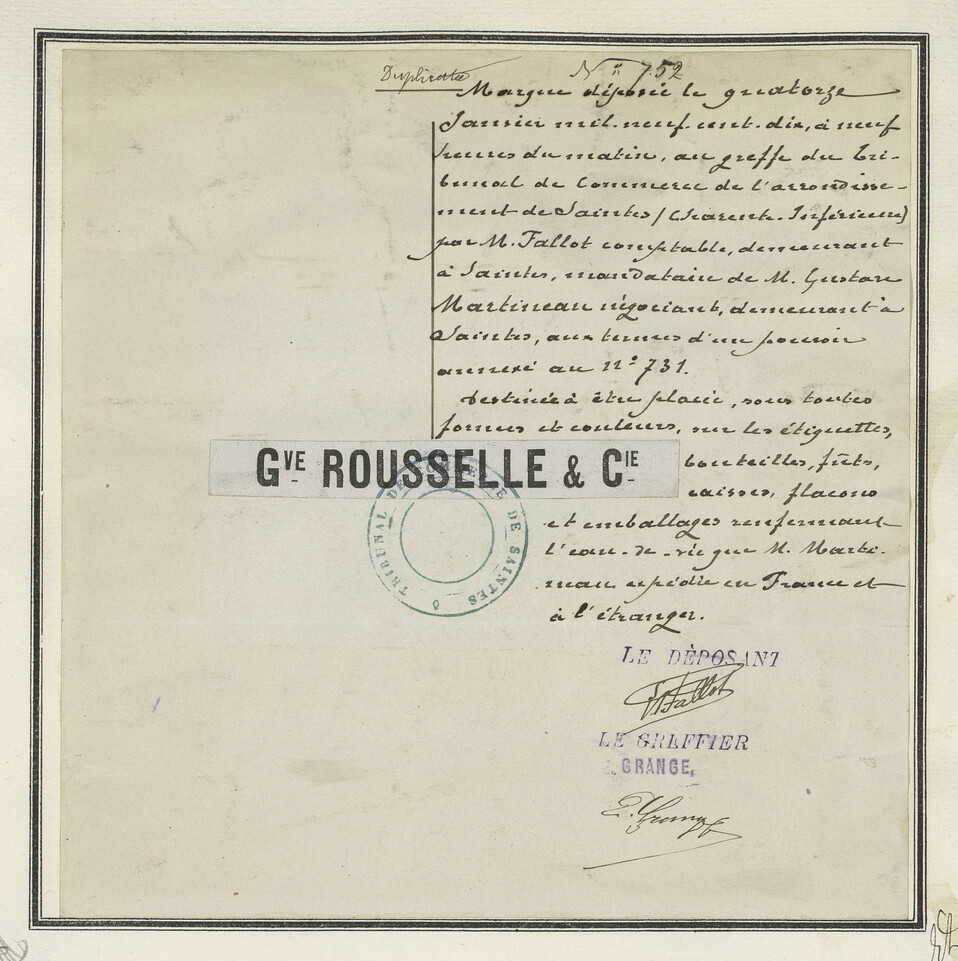 Duplicata
N° 752
Marque déposée le quatorze
Janvier mil-neuf-cent-dix, à neuf
heures du matin, au greffe du Tri-
bunal de Commerce de l'arrondisse-
ment de Saintes (Charente-Inférieure)
par M. Fallot comptable, demeurant
à Saintes, mandataire de M. Gustave
Martineau négociant, demeurant à
Saintes, aux termes d'un pouvoir
annexé au n° 731.
Destinée à être placée, sous toutes
formes et couleurs, sur les étiquettes,
bouteilles, fûts,
GVE ROUSSELLE & CIE
caisses, flacons
et emballages renfermant
l'eau-de-vie que M. Marti-
neau expédie en France et
à l'étranger.
TRIBUNAL DE COMMERCE DE SAINTES
LE DÉPOSANT
Fallot
LE GREFFIER
E. GRANGE,
E. Grange